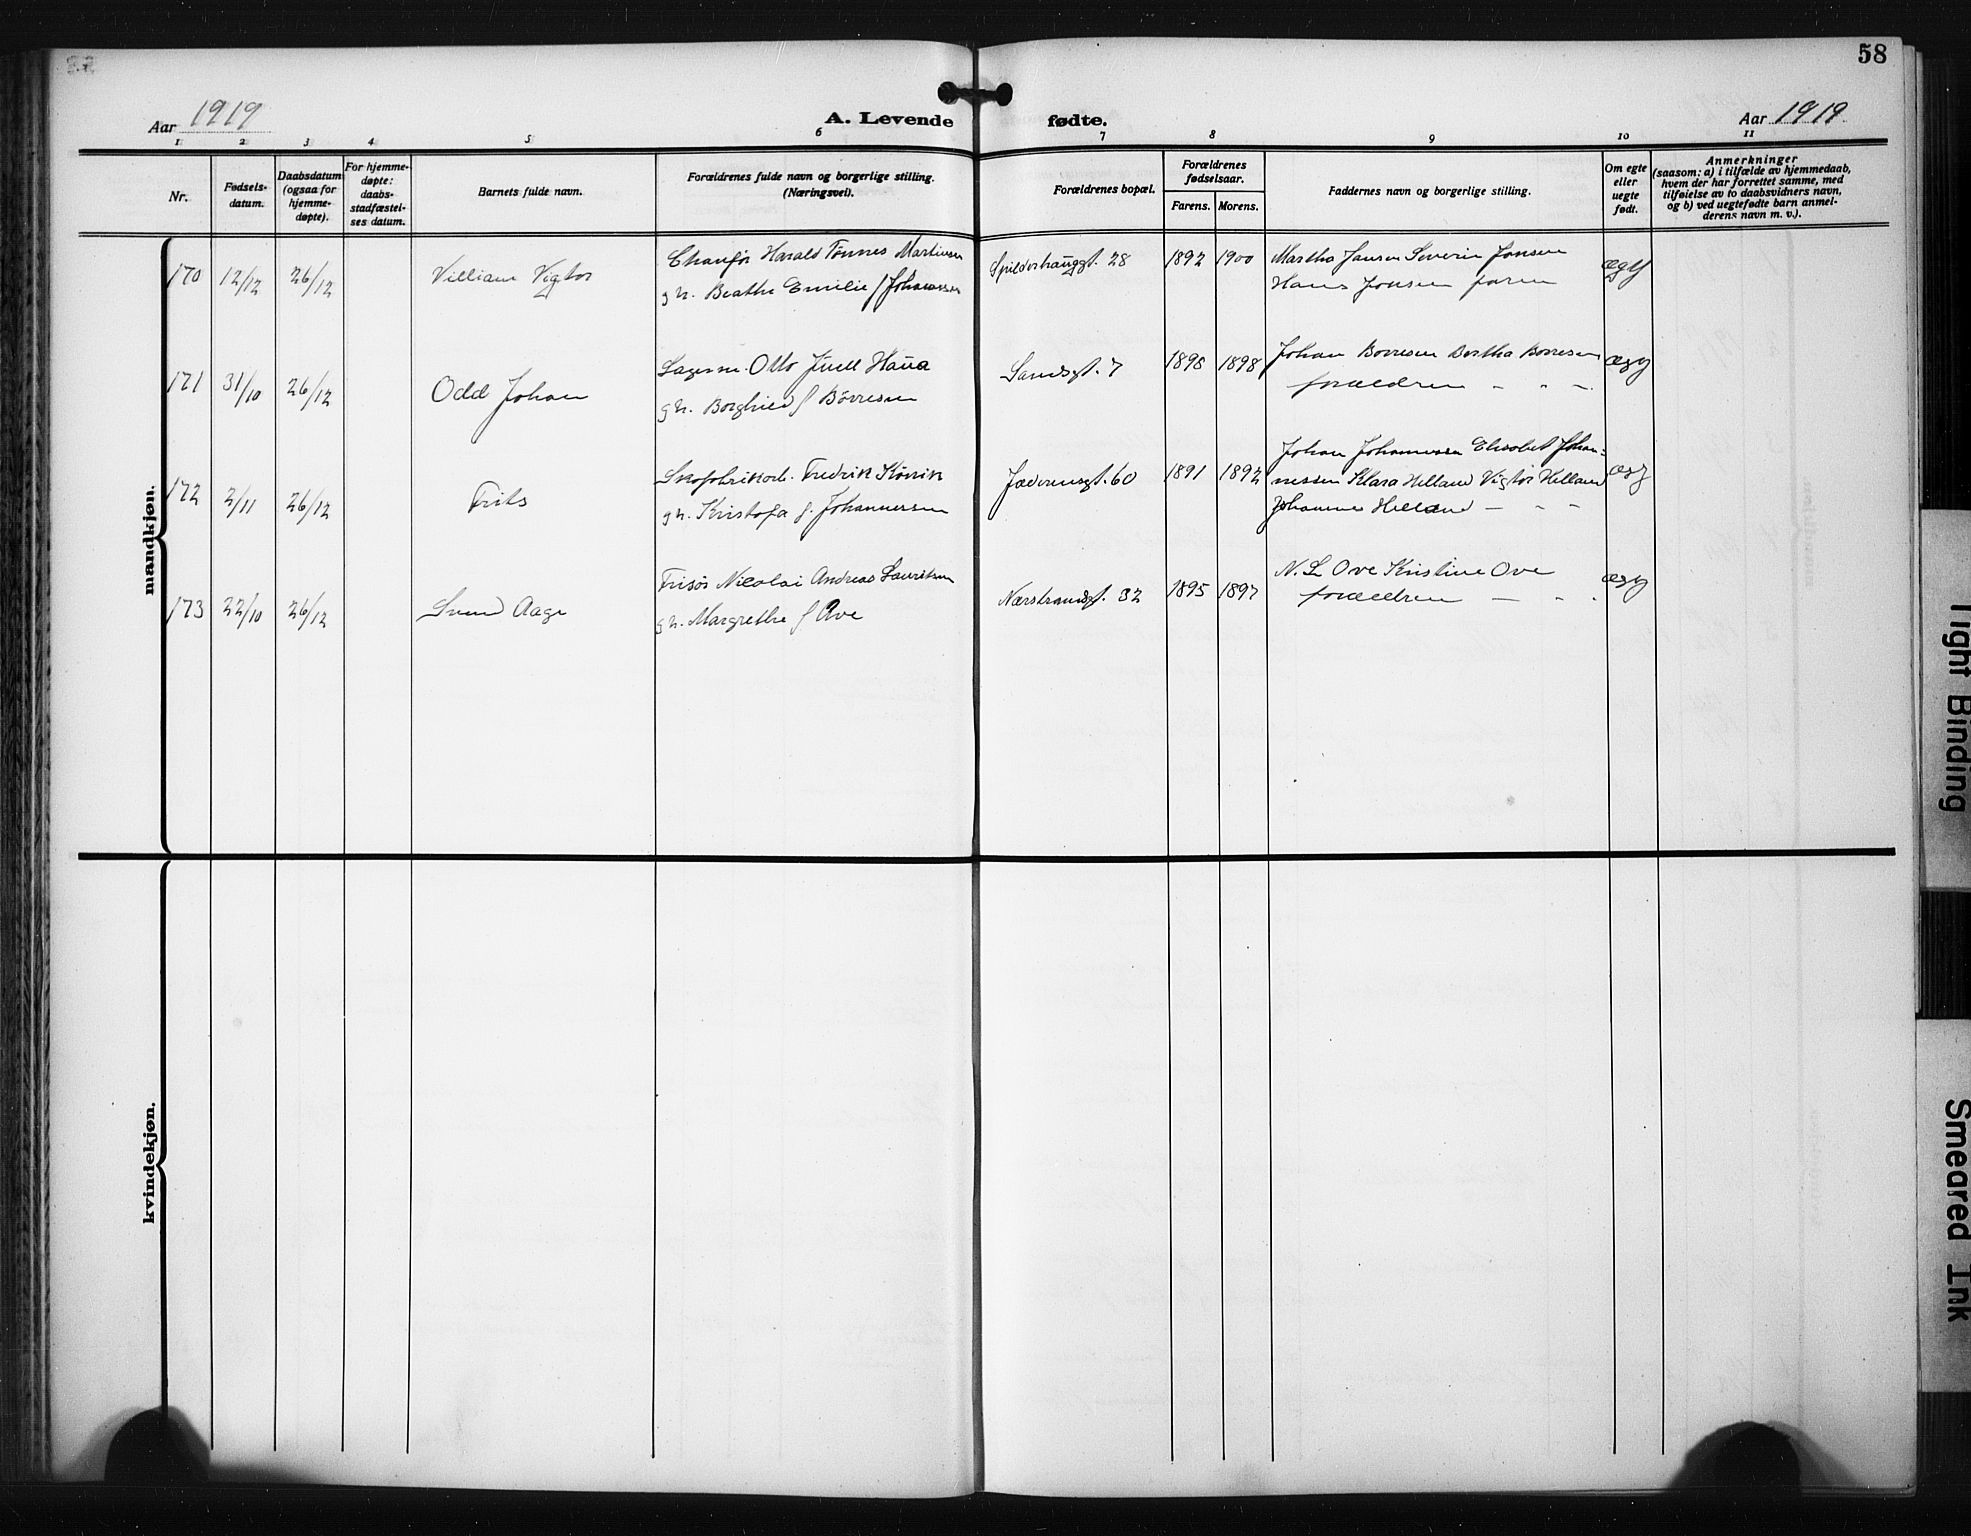 58
Aar 1919
A. Levende fødte.
Aar 1919
1 2 3 4 5 6 7 8 9 10 11
Nr.
Fødsels-
datum.
Daabsdatum
(ogsaa for
hjemme-
døpte).
For hjemme-
døpte:
daabs-
stadfæstel-
ses datum.
Barnets fulde navn.
Forældrenes fulde navn og borgerlige stilling.
(Næringsvei).
Forældrenes bopæl.
Forældrenes
fødselsaar.
Farens. Morens.
Faddernes navn og borgerlige stilling.
Om egte
eller
uegte
født.
Anmerkninger
(saasom: a) i tilfælde av hjemmedaab,
hvem der har forrettet samme, med
tilføielse av to daabsvidners navn,
og b) ved uegtefødte barn anmel-
derens navn m. v.).
mandkjøn.
170 12/12 26/12 Villiam Vigtor
Chaufør Harald Tønnes Martinsen
g. h. Beathe Emilie f Johannessen
Spilderhauggt. 28 1892 1900
Martha Jansen Severin Jonsen
Hans Jonsen faren
ægt
171 31/10 26/12 Odd Johan
Lagerm. Otto Juell Haua
g. h. Borghild f Børresen
Sandsgt. 7 1898 1898
Johan Borresen Bertha Borresen
forældren — " —
ægt
172 2/11 26/12 Frits
Skofabrikarb. Fredrik
g. h. Kristofa f. Johannessen
Jæderensgt. 60 1891 1892
Johan Johannessen Elisabet Johan-
nessen Klara Helland Vigtor Helland
Johannes Helland — " —
ægt
173 22/10 26/12 Svend Aage
Frisør Nicolai Andreas Lauritsen
g. h. Margrethe f Ove
Nærstrandsgt. 32 1895 1897
N. L. Ove Kristine Ove
forældren — " .
ægt
kvindekjøn.
Tight Binding
Smeared Ink